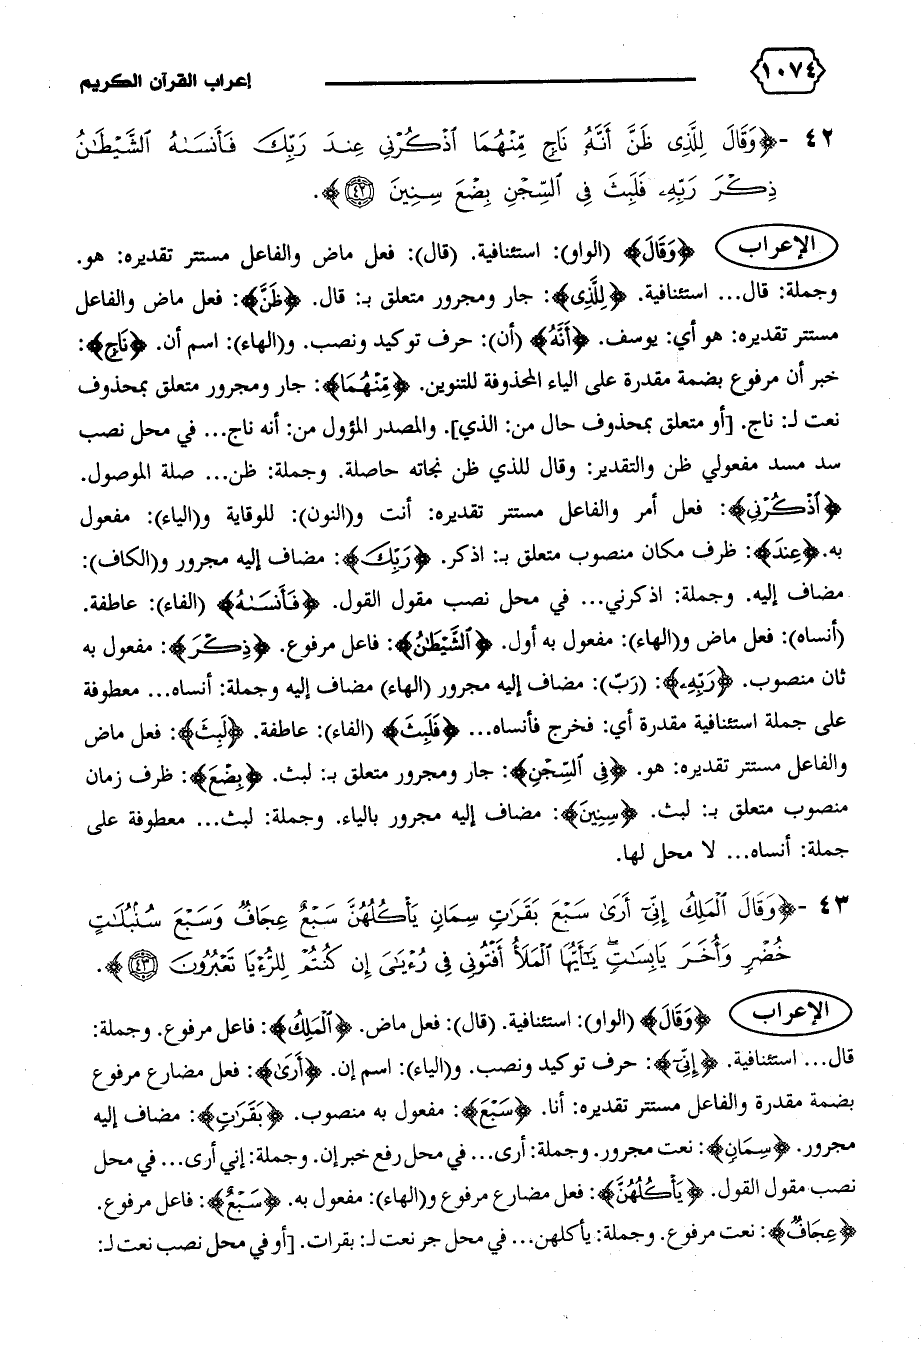 ١٠٧٤ إعراب القرآن الكريم
٤٢ - ﴿وَقَالَ لِلَّذِى ظَنَّ أَنَّهُۥ نَاجٍ مِّنْهُمَا ٱذْكُرْنِى عِندَ رَبِّكَ فَأَنسَىٰهُ ٱلشَّيْطَٰنُ
ذِكْرَ رَبِّهِۦ فَلَبِثَ فِى ٱلسِّجْنِ بِضْعَ سِنِينَ ﴿٤٢﴾﴾.
الإعراب ﴿وَقَالَ﴾ (الواو): استئنافية. (قال): فعل ماض والفاعل مستتر تقديره: هو.
وجملة: قال... استئنافية. ﴿لِلَّذِى﴾: جار ومجرور متعلق بـ: قال. ﴿ظَنَّ﴾: فعل ماض والفاعل
مستتر تقديره: هو أي: يوسف. ﴿أَنَّهُۥ﴾ (أن): حرف توكيد ونصب. و(الهاء): اسم أن. ﴿نَاجٍ﴾:
خبر أن مرفوع بضمة مقدرة على الياء المحذوفة للتنوين. ﴿مِّنْهُمَا﴾: جار ومجرور متعلق بمحذوف
نعت لـ: ناج. [أو متعلق بمحذوف حال من: الذي]. والمصدر المؤول من: أنه ناج... في محل نصب
سد مسد مفعولي ظن والتقدير: وقال للذي ظن نجاته حاصلة. وجملة: ظن... صلة الموصول.
﴿ٱذْكُرْنِى﴾: فعل أمر والفاعل مستتر تقديره: أنت و(النون): للوقاية و(الياء): مفعول
به. ﴿عِندَ﴾: ظرف مكان منصوب متعلق بـ: اذكر. ﴿رَبِّكَ﴾: مضاف إليه مجرور و(الكاف):
مضاف إليه. وجملة: اذكرني... في محل نصب مقول القول. ﴿فَأَنسَىٰهُ﴾ (الفاء): عاطفة.
(أنساه): فعل ماض و(الهاء): مفعول به أول. ﴿ٱلشَّيْطَٰنُ﴾: فاعل مرفوع. ﴿ذِكْرَ﴾: مفعول به
ثان منصوب. ﴿رَبِّهِۦ﴾: (رَبّ): مضاف إليه مجرور (الهاء) مضاف إليه وجملة: أنساه... معطوفة
على جملة استئنافية مقدرة أي: فخرج فأنساه... ﴿فَلَبِثَ﴾ (الفاء): عاطفة. ﴿لَبِثَ﴾: فعل ماض
والفاعل مستتر تقديره: هو. ﴿فِى ٱلسِّجْنِ﴾: جار ومجرور متعلق بـ: لبث. ﴿بِضْعَ﴾: ظرف زمان
منصوب متعلق بـ: لبث. ﴿سِنِينَ﴾: مضاف إليه مجرور بالياء. وجملة: لبث... معطوفة على
جملة: أنساه... لا محل لها.
٤٣ - ﴿وَقَالَ ٱلْمَلِكُ إِنِّىٓ أَرَىٰ سَبْعَ بَقَرَٰتٍ سِمَانٍ يَأْكُلُهُنَّ سَبْعٌ عِجَافٌ وَسَبْعَ سُنۢبُلَٰتٍ
خُضْرٍ وَأُخَرَ يَابِسَٰتٍ ۖ يَٰٓأَيُّهَا ٱلْمَلَأُ أَفْتُونِى فِى رُءْيَٰىَ إِن كُنتُمْ لِلرُّءْيَا تَعْبُرُونَ ﴿٤٣﴾﴾.
الإعراب ﴿وَقَالَ﴾ (الواو): استئنافية. (قال): فعل ماض. ﴿ٱلْمَلِكُ﴾: فاعل مرفوع. وجملة:
قال... استئنافية. ﴿إِنِّىٓ﴾: حرف توكيد ونصب. و(الياء): اسم إن. ﴿أَرَىٰ﴾: فعل مضارع مرفوع
بضمة مقدرة والفاعل مستتر تقديره: أنا. ﴿سَبْعَ﴾: مفعول به منصوب. ﴿بَقَرَٰتٍ﴾: مضاف إليه
مجرور. ﴿سِمَانٍ﴾: نعت مجرور. وجملة: أرى... في محل رفع خبر إن. وجملة: إني أرى... في محل
نصب مقول القول. ﴿يَأْكُلُهُنَّ﴾: فعل مضارع مرفوع و(الهاء): مفعول به. ﴿سَبْعٌ﴾: فاعل مرفوع.
﴿عِجَافٌ﴾: نعت مرفوع. وجملة: يأكلهن... في محل جر نعت لـ: بقرات. [أو في محل نصب نعت لـ: